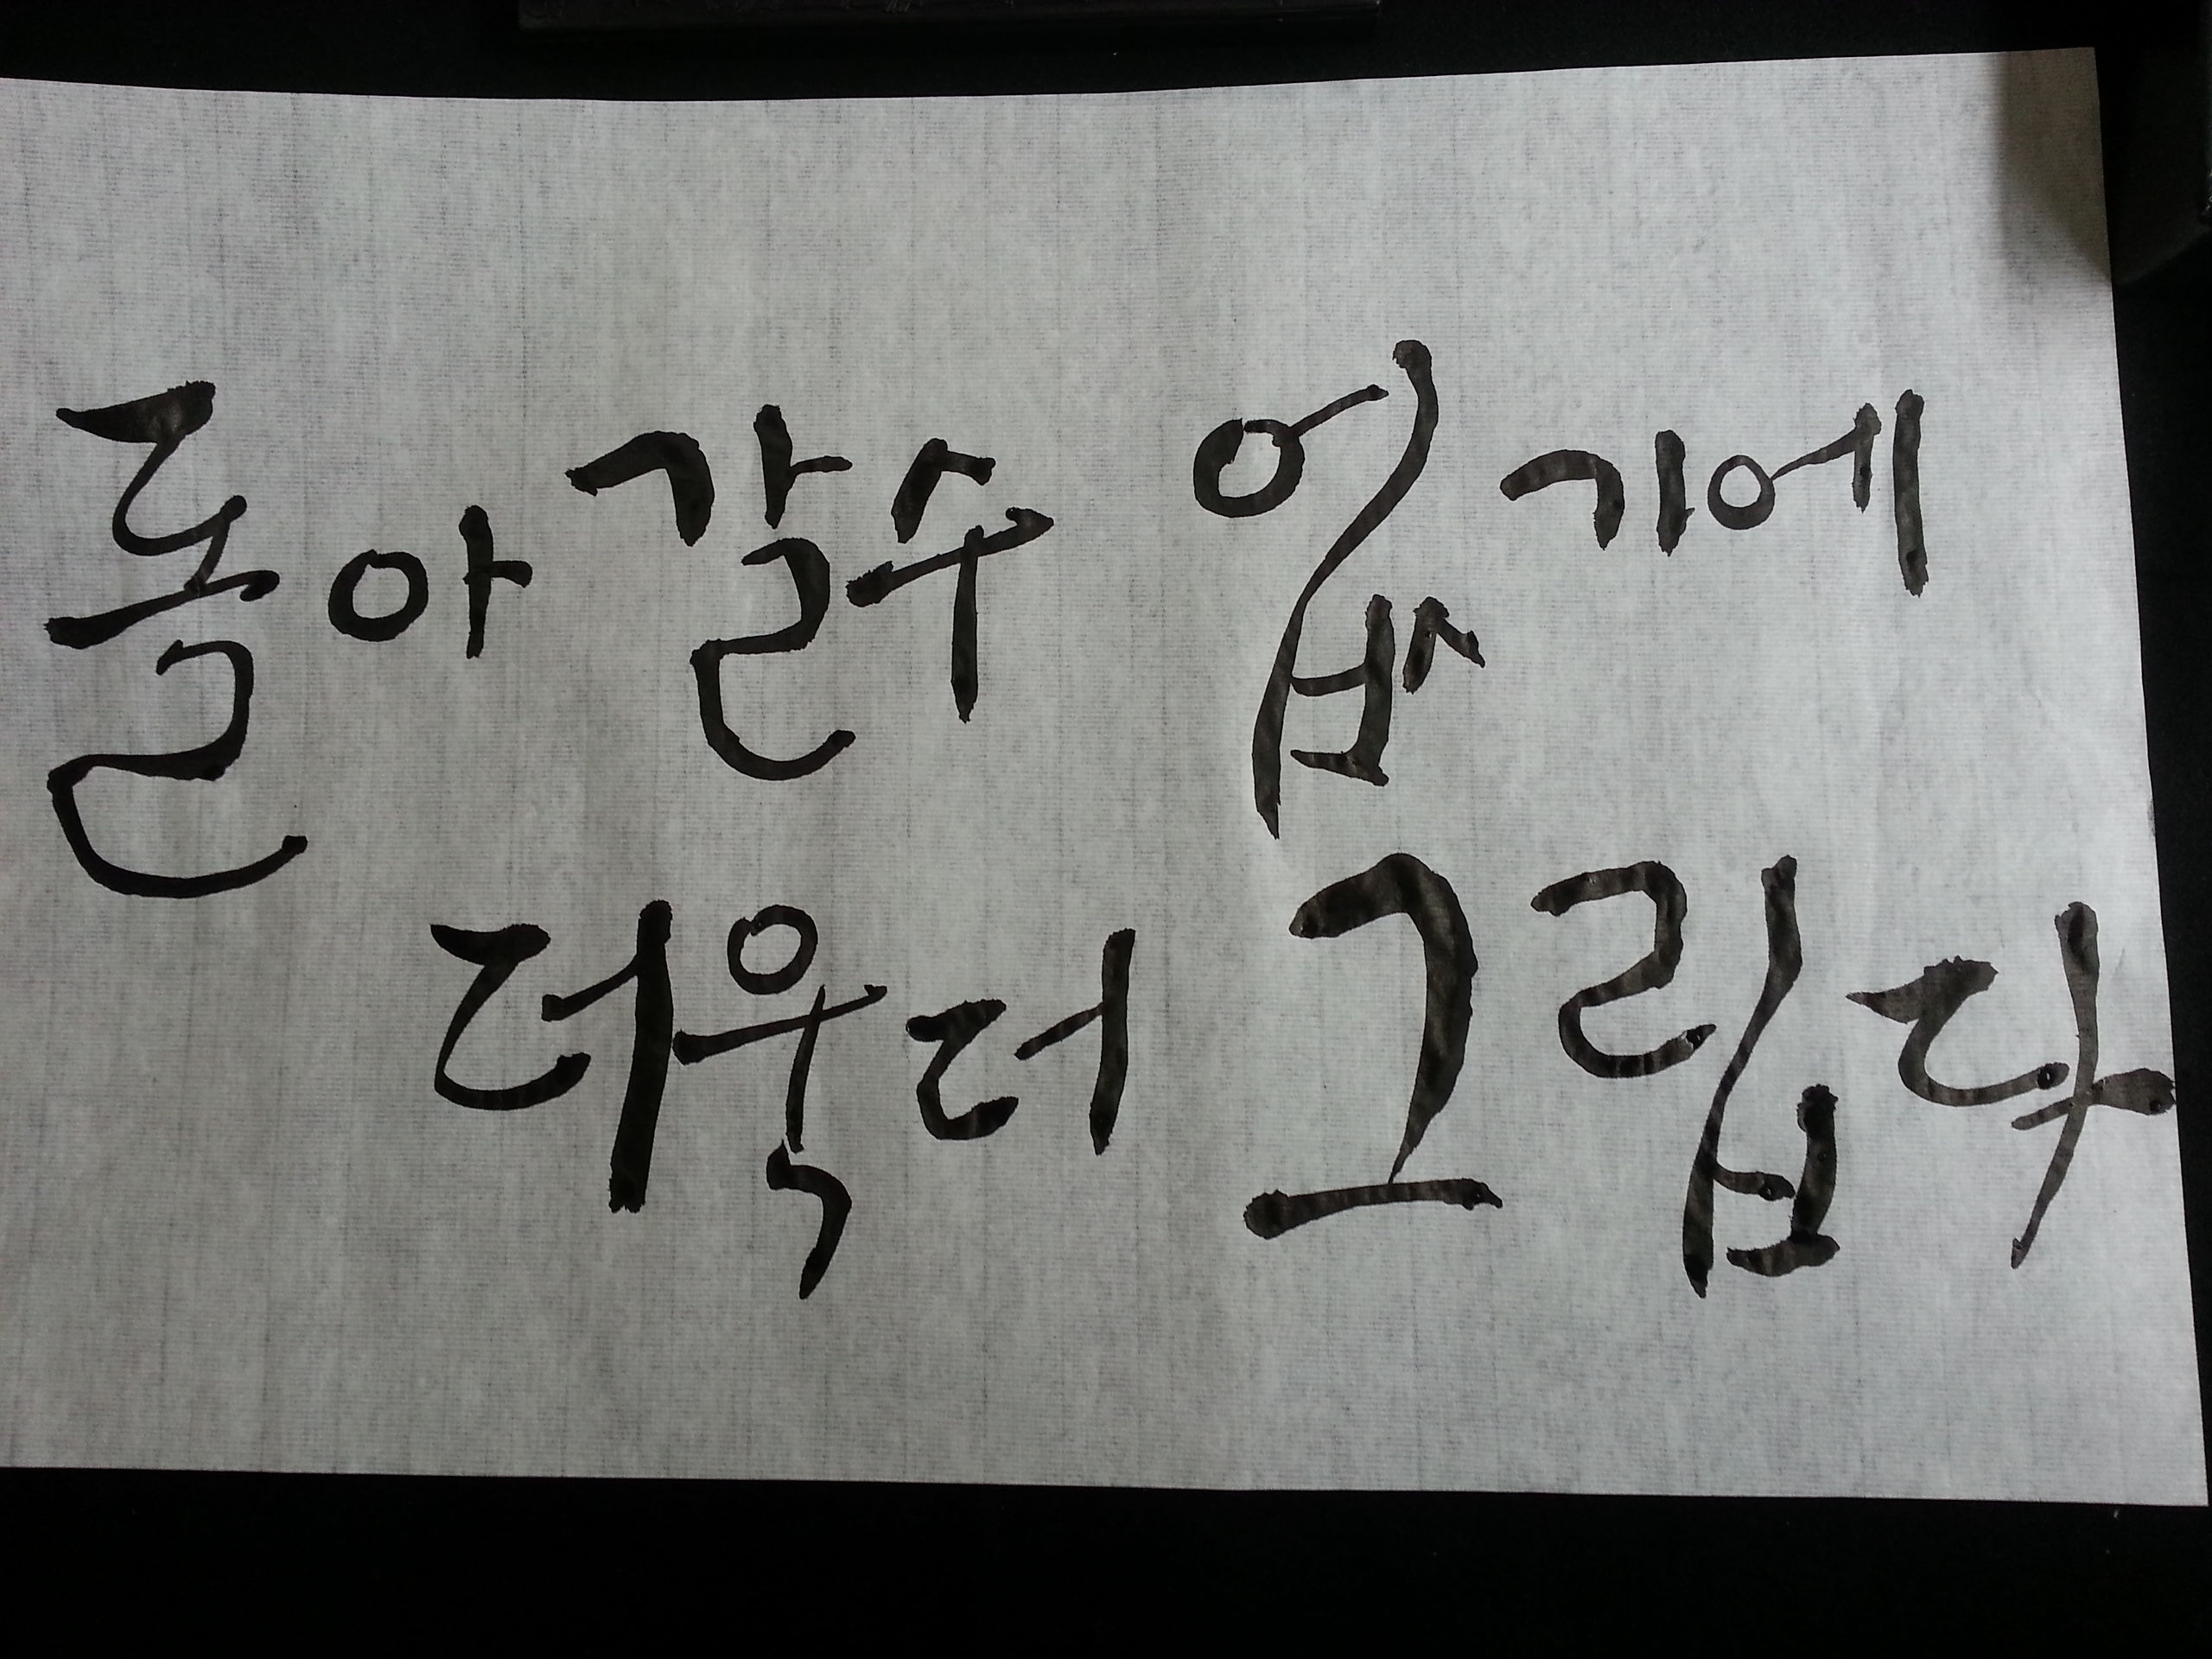 돌아 갈수 없기에
더욱더 그립다